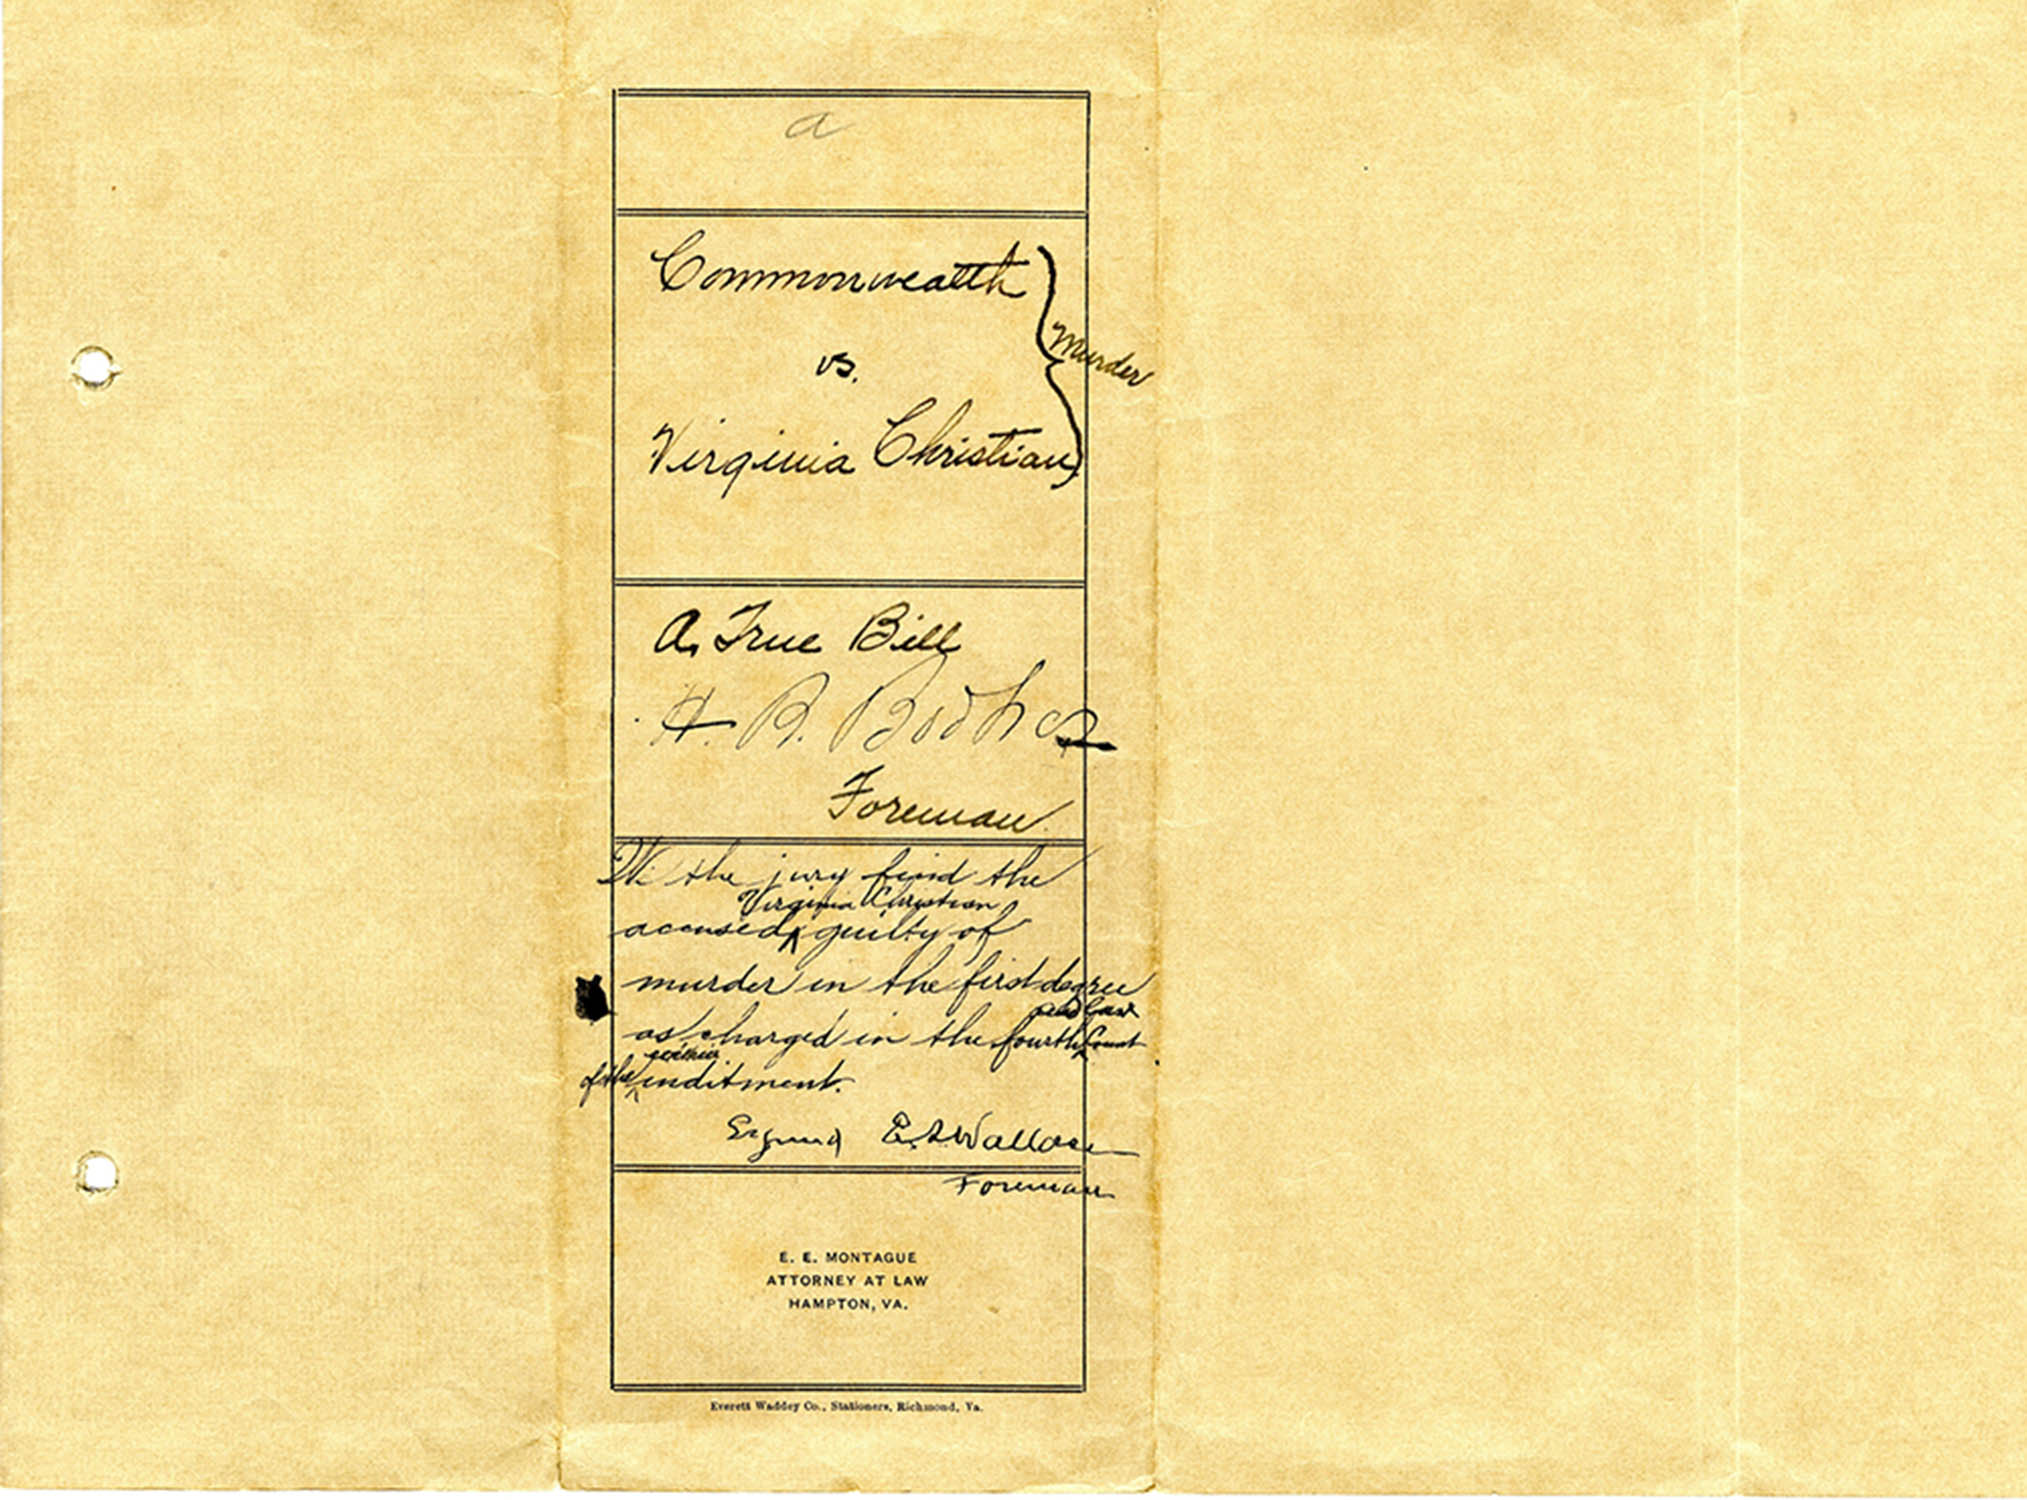 a
Commonwealth
vs.
Virginia Christian
Murder
A True Bill
H. R. Booker
Foreman
We the jury find the
Virginia Christian
accused guilty of
murder in the first degree
and last
as charged in the fourth Count
within
of the inditment.
Signed E. A. Wallace
Foreman
E. E. MONTAGUE
ATTORNEY AT LAW
HAMPTON, VA.
Everett Waddey Co., Stationers, Richmond, Va.